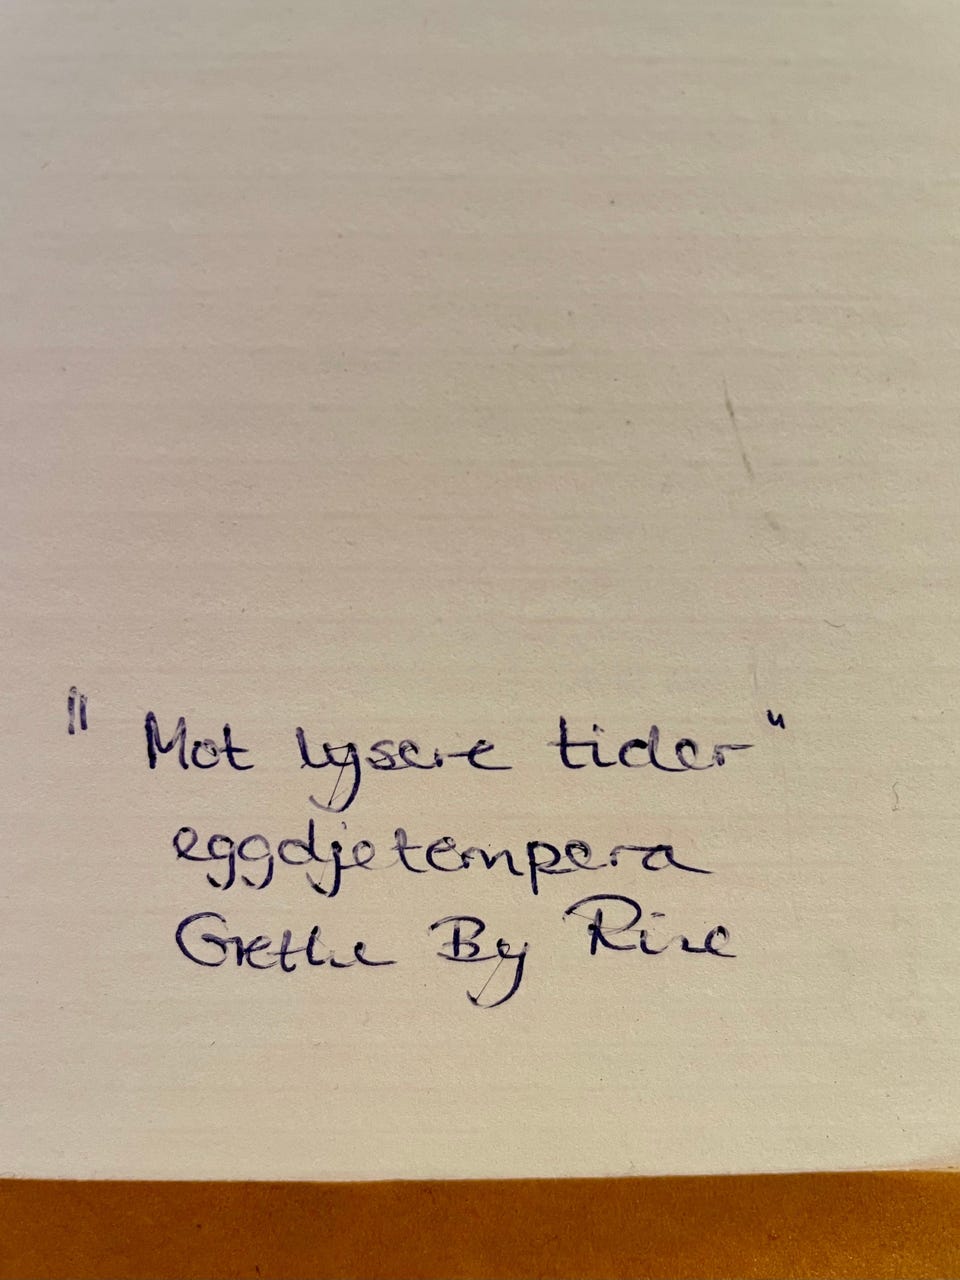 "Mot lysere tider"
eggdjetempera
Grethe By Rise